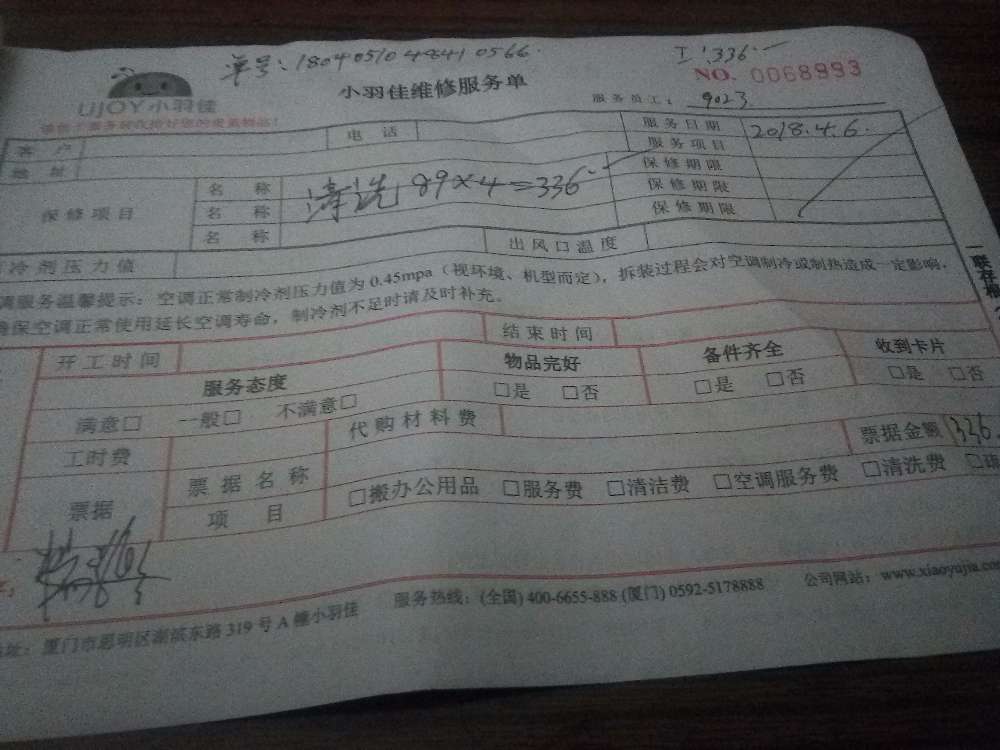 单号:1804051048410566. 工:336.一
UJOY小羽佳 小羽佳维修服务单 NO. 0068993
服务员工: 9023
客户 电话 服务日期 2018.4.6.
地址 服务项目
保修项目 名称 清洗 89×4=336.一 保修期限
名称 保修期限
名称 保修期限
冷剂压力值 出风口温度
调服务温馨提示:空调正常制冷剂压力值为0.45mpa(视环境、机型而定),拆装过程会对空调制冷或制热造成一定影响,
确保空调正常使用延长空调寿命,制冷剂不足时请及时补充。
一联存根
开工时间 结束时间
服务态度 物品完好 备件齐全 收到卡片
满意□ 一般□ 不满意□ □是 □否 □是 □否 □是 □否
工时费 代购材料费 票据金额 336.
票据 票据名称 □搬办公用品 □服务费 □清洁费 □空调服务费 □清洗费
项目
址:厦门市思明区湖滨东路319号A幢小羽佳 服务热线:(全国)400-6655-888(厦门)0592-5178888 公司网站:www.xiaoyujia.com